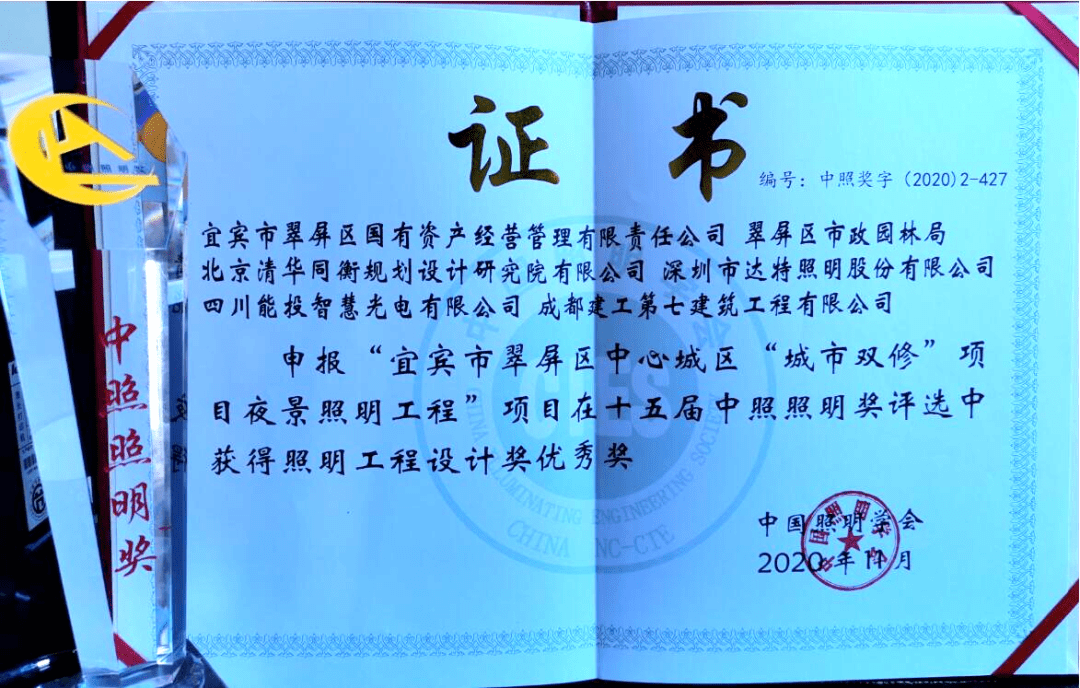 证 书
编号：中照奖字 (2020) 2-427
宜宾市翠屏区国有资产经营管理有限责任公司 翠屏区市政园林局
北京清华同衡规划设计研究院有限公司 深圳市达特照明股份有限公司
四川能投智慧光电有限公司 成都建工第七建筑工程有限公司
申报“宜宾市翠屏区中心城区“城市双修”项
目夜景照明工程”项目在十五届中照照明奖评选中
获得照明工程设计奖优秀奖
中国照明学会
2020年11月
中照照明奖
CHINA ILLUMINATING ENGINEERING SOCIETY
CHINA NC-CIE
CIES